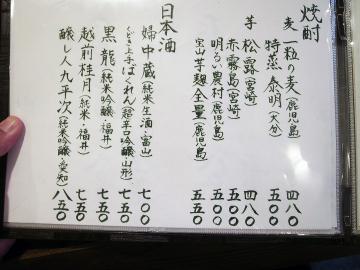 焼酎
麦 一粒の麦(鹿児島) 四八〇
特蒸 泰明(大分) 五〇〇
芋 松露(宮崎) 四八〇
赤霧島(宮崎) 五〇〇
明るい農村(鹿児島) 五〇〇
宝山 芋麹全量(鹿児島) 五五〇
日本酒
婦中蔵(純米生酒・富山) 七〇〇
くどき上手 ばくれん(超辛口吟醸・山形) 七五〇
黒龍(純米吟醸・福井) 七五〇
越前桂月(純米・福井) 七五〇
醸し人九平次(純米吟醸・愛知) 八五〇